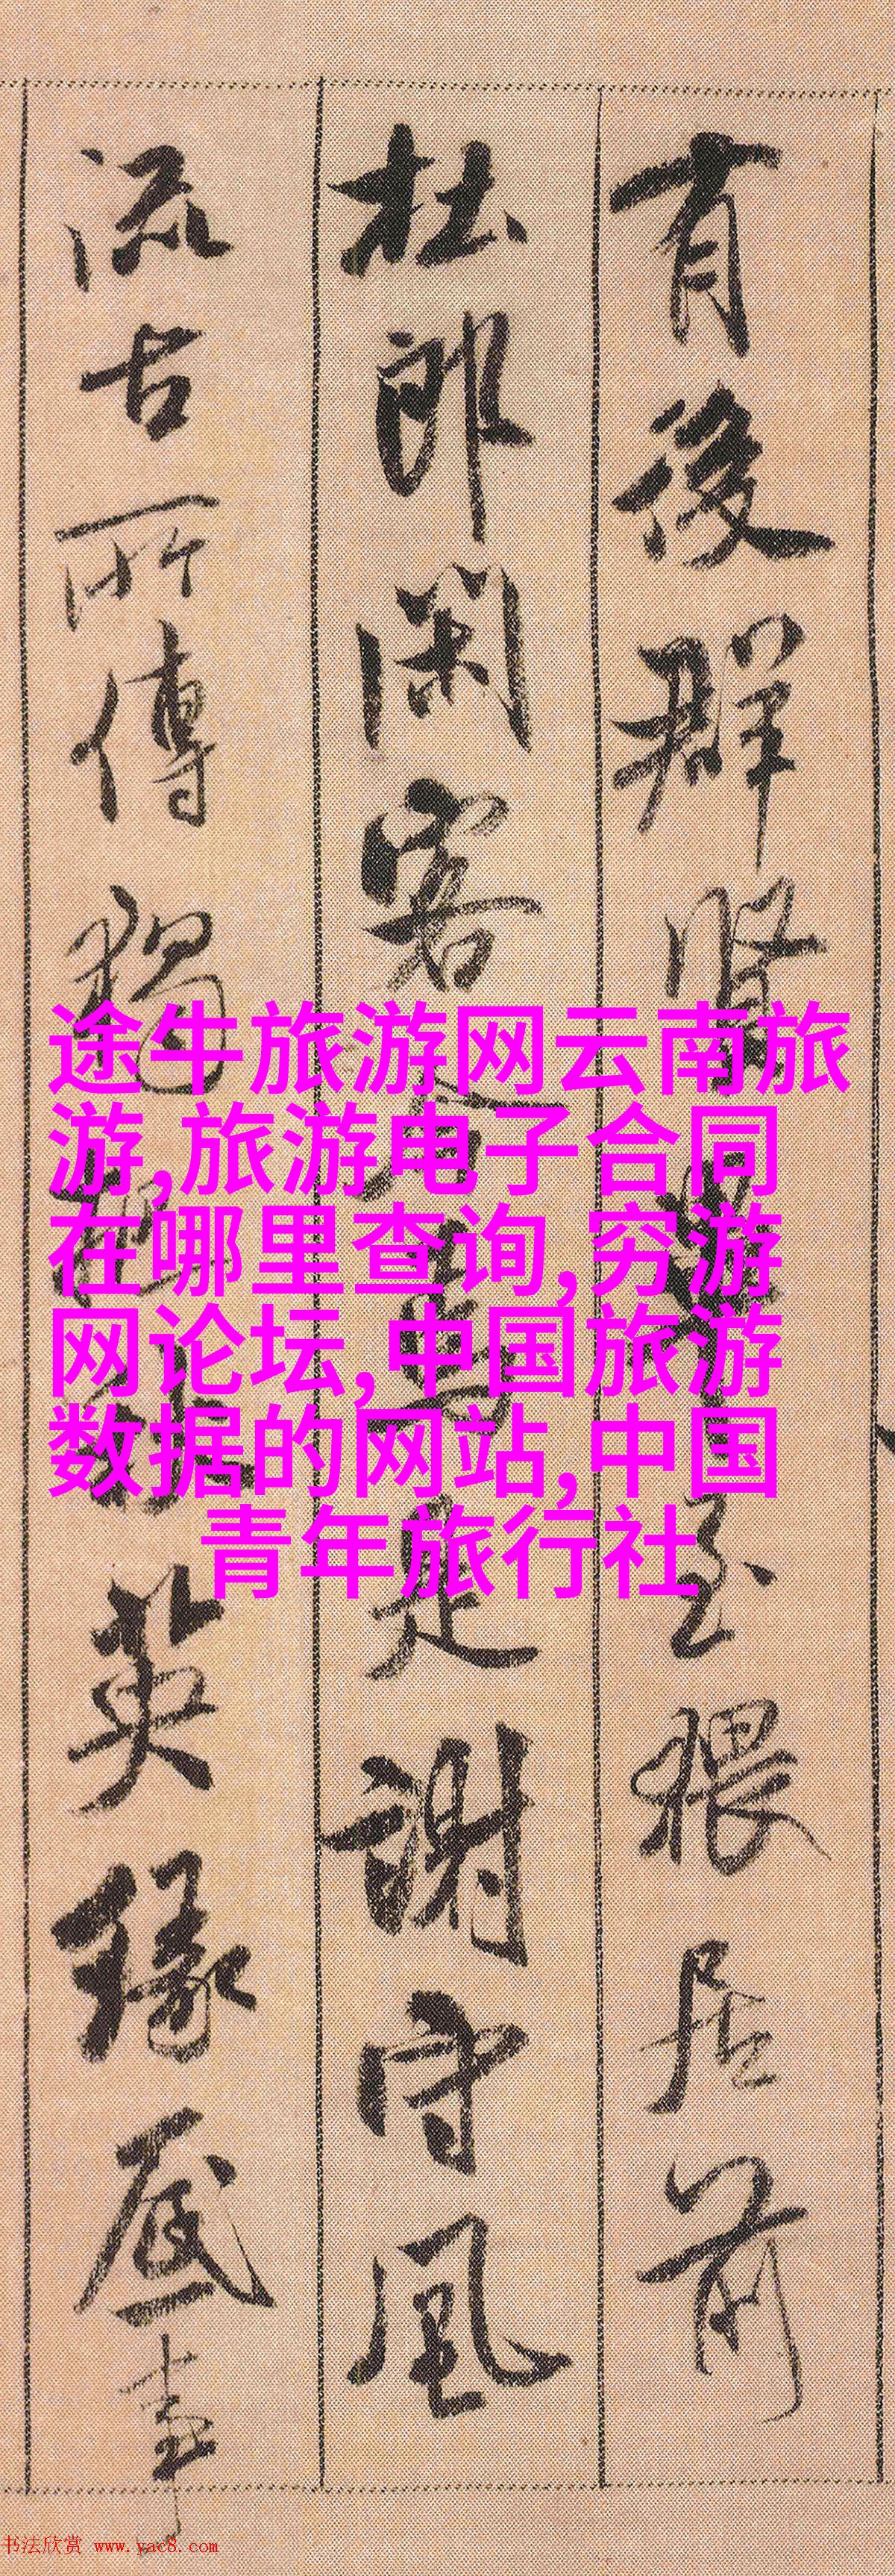 有後群賢畢至猥居前
杜郎閑客今焉是謝守風
流古所傳獨把秋英緣底事
途牛旅游网云南旅
游,旅游电子合同
在哪里查询,穷游
网论坛,中国旅游
数据的网站,中国
青年旅行社
书法欣赏 www.yac8.com